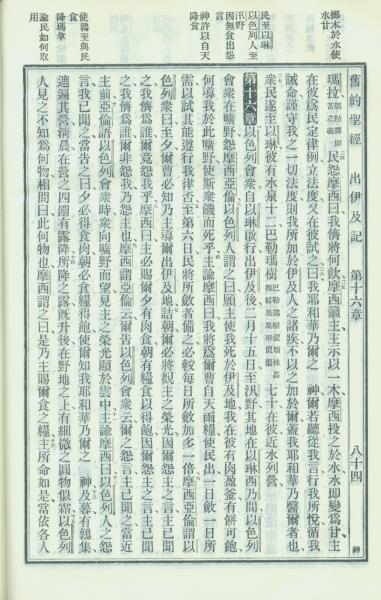 舊約聖經 出伊及記 第十六章 八十四
擲木於水使水甘
民至以琳
以色列人至汛野
因無食出怨言
神許以自天降食
使鶉至與民食
降瑪拿
諭民如何取用
瑪拉瑪拉譯即苦之義民怨摩西曰我儕將何飲摩西籲主主示以一木摩西投之於水水即變爲甘主
在彼爲民定律例立法度又在彼試之曰我耶和華乃爾之 神爾若聽從我言行我所悅循我
誡命謹守我之一切法度則我所加於伊及人之諸疾不以之加於爾蓋我耶和華乃醫爾者也
衆民遂至以琳彼有水泉十二巴勒瑪樹七十在彼近水列營
第十六章 以色列會衆自以琳啟行出伊及後二月十五日至汛野其地在以琳西乃間以色列
會衆在曠野怨摩西亞倫以色列人謂之曰願主使我死於伊及地我在彼有肉盈釜有餅可飽
何導我於此曠野使斯衆饑而死乎主諭摩西曰我將爲爾曹自天雨糧使民出一日斂一日所
需以試其能遵行我律否至第六日民將所斂者備之必較每日所斂加多一倍摩西亞倫謂以
色列衆曰至夕爾曹必知乃主導爾出伊及地詰朝爾必將視主之榮光因爾怨主之言主已聞
之我儕爲誰爾竟怨我乎摩西曰主必賜爾夕有肉食朝有糧食以得飽因爾怨主之言主已聞
之我儕爲誰爾非怨我乃怨主也摩西謂亞倫云爾告以色列會衆云爾之怨言主已聞之當近
主前亞倫語以色列會衆時衆向曠野而望見主之榮光顯於雲中主諭摩西曰以色列人之怨
言我已聞之當告之曰夕必得食肉朝必食糧得飽使爾知我耶和華乃爾之 神及暮有鶉集
遮遍其營淸晨在營之四圍有露降所降之露旣升後在野地之上有細微之圓物似霜以色列
人見之不知爲何物相問曰此何物也摩西謂之曰是乃主賜爾食之糧主所命如是當依各人